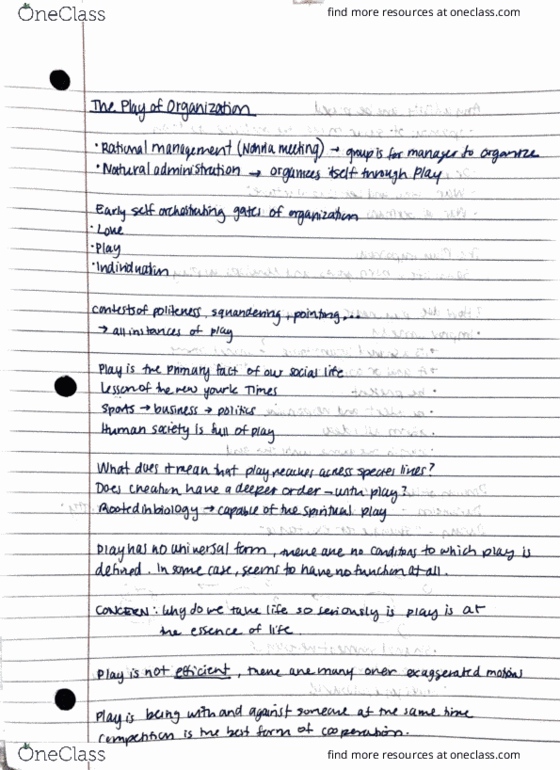 OneClass
find more resources at oneclass.com
The Play of Organization
• Rational management (Nonna meeting) → group is for manager to organize
• Natural administration → organizes itself through Play
Early self orchestrating gates of organization
• Love
• Play
• Individuation
contests of politeness, squandering, pointing...
→ all instances of play
Play is the primary fact of our social life
Lesson of the new york Times
Sports → business → politics
Human society is full of play
What does it mean that play reaches across species lines?
Does creation have a deeper order - with play?
Rooted in biology → capable of the spiritual play
Play has no universal form, there are no conditons to which play is
defined. In some case, seems to have no function at all.
CONCERN: Why do we take life so seriously is play is at
the essence of life.
Play is not efficient, there are many over exaggerated motions
Play is being with and against someone at the same time
competition is the best form of cooperation.
OneClass
find more resources at oneclass.com